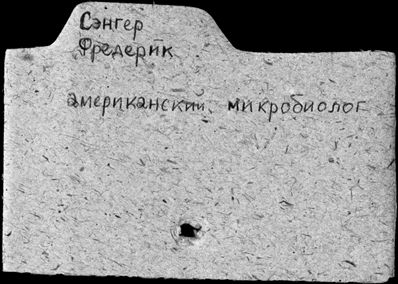 Сэнгер
Фредерик
американский микробиолог